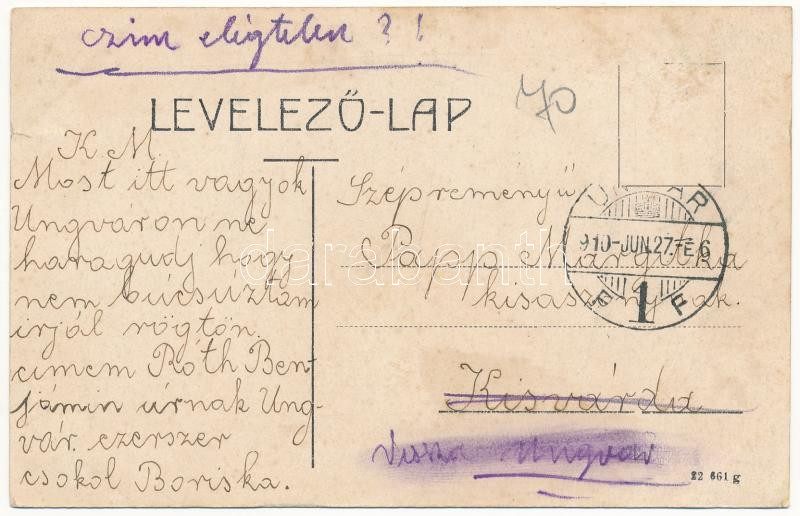 czim elégtelen ? !
70
LEVELEZŐ-LAP
K. M.
Most itt vagyok
Ungváron ne
haragudj hogy
nem búcsúztam
irjál rögtön.
cimem Róth Ben-
jámin úrnak Ung-
vár. ezerszer
csokol Boriska.
Szépreményű
Papp Margitka
kisasszonynak.
Kisvárda
vissza Ungvár
UNGVÁR
910-JUN.27.-E 6
1
F
22 661 g
darabanth